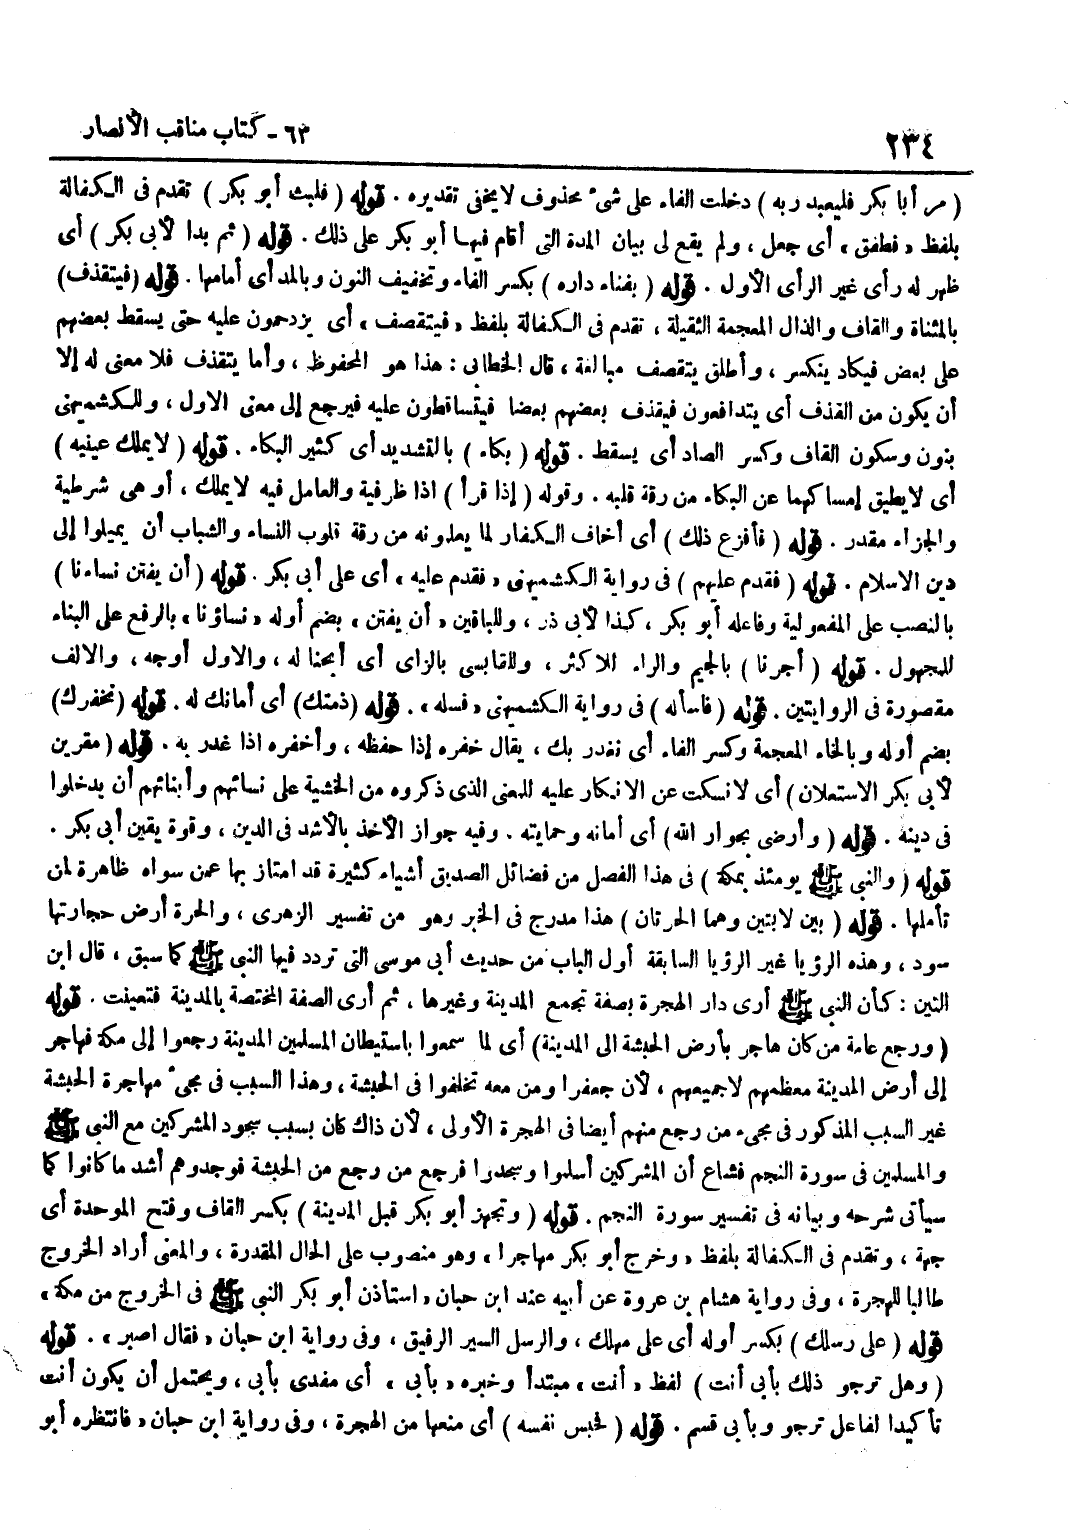 ٢٣٤
٦٣ - كتاب مناقب الأنصار
( مر أبا بكر فليعبد ربه ) دخلت الفاء على شىء محذوف لا يخفى تقديره . قوله ( فلبث أبو بكر ) تقدم فى الكفالة
بلفظ « فطفق » أى جعل ، ولم يقع لى بيان المدة التى أقام فيها أبو بكر على ذلك . قوله ( ثم بدا لأبى بكر ) أى
ظهر له رأى غير الرأى الأول . قوله ( بفناء داره ) بكسر الفاء وتخفيف النون وبالمد أى أمامها . قوله ( فيتقذف )
بالمثناة والقاف والذال المعجمة الثقيلة ، تقدم فى الكفالة بلفظ « فيتقصف » أى يزدحمون عليه حتى يسقط بعضهم
على بعض فيكاد ينكسر ، وأطلق يتقصف مبالغة ، قال الخطابى : هذا هو المحفوظ ، وأما يتقذف فلا معنى له إلا
أن يكون من القذف أى يتدافعون فيقذف بعضهم بعضا فيتساقطون عليه فيرجع إلى معنى الاول ، وللكشميهنى
بنون وسكون القاف وكسر الصاد أى يسقط . قوله ( بكاء ) بالتشديد أى كثير البكاء . قوله ( لا يملك عينيه )
أى لا يطيق إمساكهما عن البكاء من رقة قلبه . وقوله ( إذا قرأ ) اذا ظرفية والعامل فيه لا يملك ، أو هى شرطية
والجزاء مقدر . قوله ( فأفزع ذلك ) أى أخاف الكفار لما يعلمونه من رقة قلوب النساء والشباب أن يميلوا إلى
دين الاسلام . قوله ( فقدم عليهم ) فى رواية الكشميهنى « فقدم عليه » أى على أبى بكر . قوله ( أن يفتن نساءنا )
بالنصب على المفعولية وفاعله أبو بكر ، كذا لأبى ذر ، وللباقين « أن يفتن » بضم أوله « نساؤنا » بالرفع على البناء
للمجهول . قوله ( أجرنا ) بالجيم والراء للاكثر ، وللقابسى بالزاى أى أبحنا له ، والاول أوجه ، والالف
مقصورة فى الروايتين . قوله ( فاسأله ) فى رواية الكشميهنى « فسله » . قوله ( ذمتك ) أى أمانك له . قوله ( نخفرك )
بضم أوله وبالخاء المعجمة وكسر الفاء أى نغدر بك ، يقال خفره إذا حفظه ، وأخفره اذا غدر به . قوله ( مقرين
لأبى بكر الاستعلان ) أى لا نسكت عن الانكار عليه للمعنى الذى ذكروه من الخشية على نسائهم وأبنائهم أن يدخلوا
فى دينه . قوله ( وأرضى بجوار الله ) أى أمانه وحمايته . وفيه جواز الأخذ بالأشد فى الدين ، وقوة يقين أبى بكر .
قوله ( والنبى ﷺ يومئذ بمكة ) فى هذا الفصل من فضائل الصديق أشياء كثيرة قد امتاز بها عمن سواه ظاهرة لمن
تأملها . قوله ( بين لابتين وهما الحرتان ) هذا مدرج فى الخبر وهو من تفسير الزهرى ، والحرة أرض حجارتها
سود ، وهذه الرؤيا غير الرؤيا السابقة أول الباب من حديث أبى موسى التى تردد فيها النبى ﷺ كما سبق ، قال ابن
التين : كأن النبى ﷺ أرى دار الهجرة بصفة تجمع المدينة وغيرها ، ثم أرى الصفة المختصة بالمدينة فتعينت . قوله
( ورجع عامة من كان هاجر بأرض الحبشة الى المدينة ) أى لما سمعوا باستيطان المسلمين المدينة رجعوا إلى مكة فهاجر
إلى أرض المدينة معظمهم لا جميعهم ، لأن جعفرا ومن معه تخلفوا فى الحبشة ، وهذا السبب فى مجىء مهاجرة الحبشة
غير السبب المذكور فى مجىء من رجع منهم أيضا فى الهجرة الأولى ، لأن ذاك كان بسبب سجود المشركين مع النبى ﷺ
والمسلمين فى سورة النجم فشاع أن المشركين أسلموا وسجدوا فرجع من رجع من الحبشة فوجدوهم أشد ما كانوا كما
سيأتى شرحه وبيانه فى تفسير سورة النجم . قوله ( وتجهز أبو بكر قبل المدينة ) بكسر القاف وفتح الموحدة أى
جهة ، وتقدم فى الكفالة بلفظ « وخرج أبو بكر مهاجرا » وهو منصوب على الحال المقدرة ، والمعنى أراد الخروج
طالبا للهجرة ، وفى رواية هشام بن عروة عن أبيه عند ابن حبان « استأذن أبو بكر النبى ﷺ فى الخروج من مكة »
قوله ( على رسلك ) بكسر أوله أى على مهلك ، والرسل السير الرفيق ، وفى رواية ابن حبان « فقال اصبر » . قوله
( وهل ترجو ذلك بأبى أنت ) لفظ « أنت » مبتدأ وخبره « بأبى » أى مفدى بأبى ، ويحتمل أن يكون أنت
تأكيدا لفاعل ترجو وبأبى قسم . قوله ( فحبس نفسه ) أى منعها من الهجرة ، وفى رواية ابن حبان « فانتظره أبو